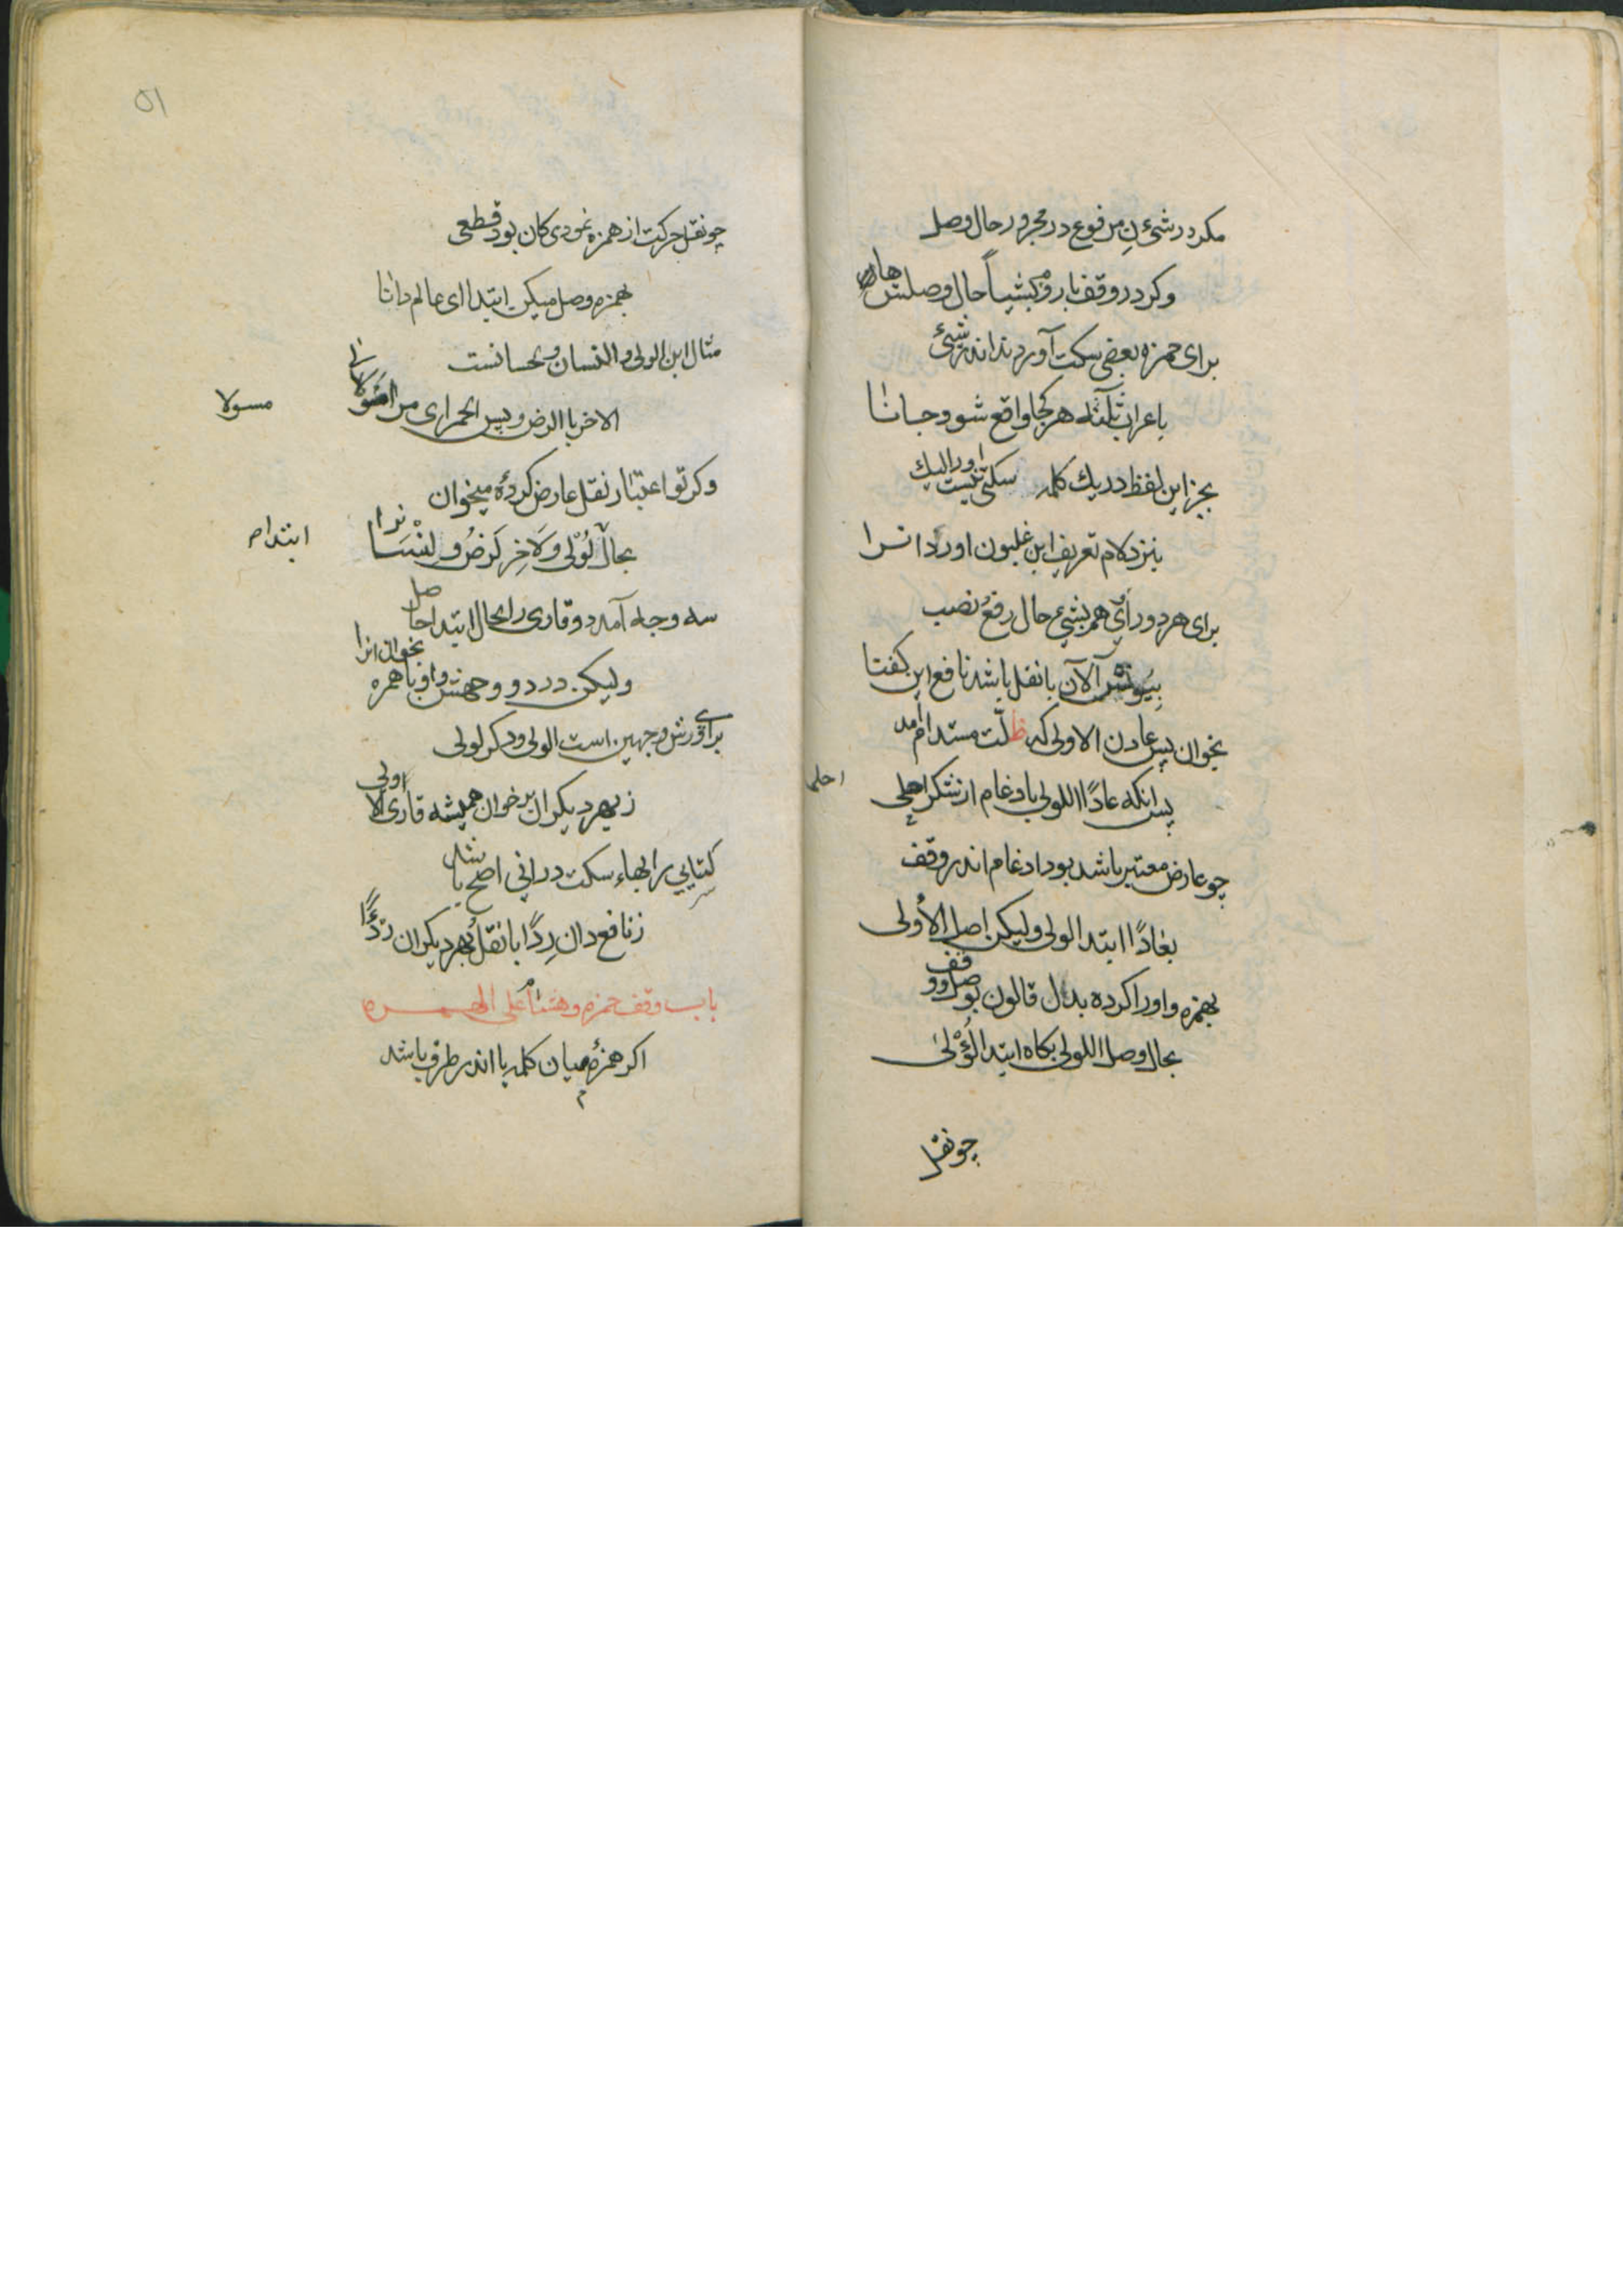 مکر در شیء ن مرفوع در مجرور حال وصل
وکر در وقف با روم بشیأ حال وصلش هان
برای حمزه بعضی سکت آوردند اندر شیء
باعراب ثلثه هر کجا واقع شود جانا
بجز این لفظ در یك کلمه سکتی نیست اورا لیك
بنزد لام تعریف ابن غلبون اورد انرا
برای هر دو رای هم بشیء حال رفع نصب
بیونس آلآن با نقل باشد نافع این کفتا
بخوان پس عادن الاولی که ظلت مستدام آمد
پس انکه عادًا اللولی بادغام از نتکر احلی
احلی
چو عارض معتبر باشد بود ادغام اندر وقف
بعادًا ابتد الولی ولیکن اصل الأولی
بهمزه واو را کرده بدل قالون بوصل و وقف
بحال وصل اللولی بکاه ابتد الؤلی
چو نقل
۵۱
چو نقل حرکت از همزه نمودی کان بود قطعی
بهمزه وصل میکن ابتدا ای عالم دانا
مثال این الولی و النسان و لحسانست
الاخر با الرض و پس لحمرای من
مسولا
وکر تو اعتبار نقل عارض کردهٔ میخوان
بحال لولی ولاخر لرض و لنسا
ابتدام
سه وجه آمد دو قاری را بحال ابتدا حاصل
ولیکن در دو وجهش واو با همزه بخوان انرا
برای ورش وجهین است الولی و دکر لولی
ز بهر دیکران برخوان همیشه قاری الاولی
کتابی را بهاء سکت در انی اصح باشد
ز نافع دان رِدًا با نقل بهر دیکران ردءًا
باب وقف حمزه و هشام علی الهمزه
اکر همزه میان کلمه یا اندر طرف باشد